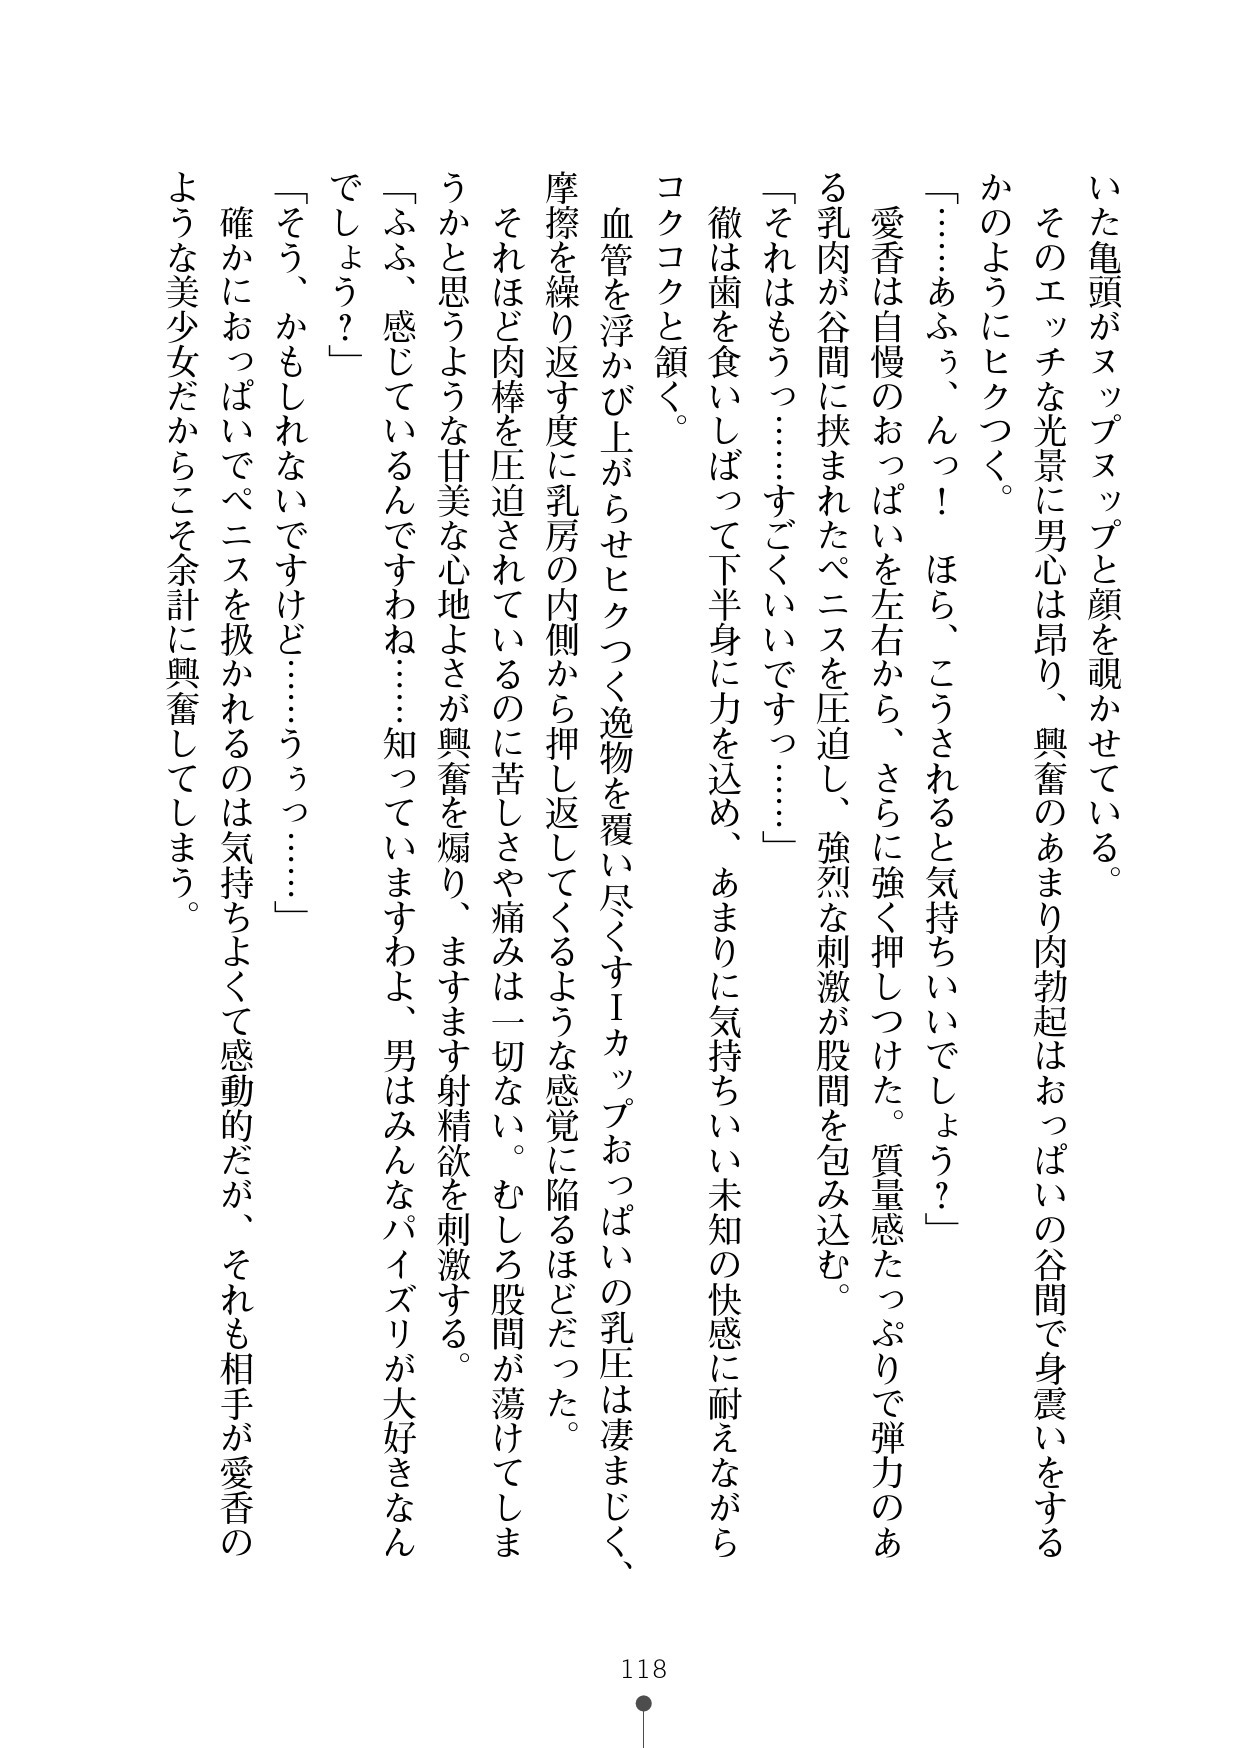 いた亀頭がヌップヌップと顔を覗かせている。
そのエッチな光景に男心は昂り、興奮のあまり肉勃起はおっぱいの谷間で身震いをする
かのようにヒクつく。
「……あふぅ、んっ！　ほら、こうされると気持ちいいでしょう？」
愛香は自慢のおっぱいを左右から、さらに強く押しつけた。質量感たっぷりで弾力のあ
る乳肉が谷間に挟まれたペニスを圧迫し、強烈な刺激が股間を包み込む。
「それはもうっ……すごくいいですっ……」
徹は歯を食いしばって下半身に力を込め、あまりに気持ちいい未知の快感に耐えながら
コクコクと頷く。
血管を浮かび上がらせヒクつく逸物を覆い尽くすＩカップおっぱいの乳圧は凄まじく、
摩擦を繰り返す度に乳房の内側から押し返してくるような感覚に陥るほどだった。
それほど肉棒を圧迫されているのに苦しさや痛みは一切ない。むしろ股間が蕩けてしま
うかと思うような甘美な心地よさが興奮を煽り、ますます射精欲を刺激する。
「ふふ、感じているんですわね……知っていますわよ、男はみんなパイズリが大好きなん
でしょう？」
「そう、かもしれないですけど……うぅっ……」
確かにおっぱいでペニスを扱かれるのは気持ちよくて感動的だが、それも相手が愛香の
ような美少女だからこそ余計に興奮してしまう。
118